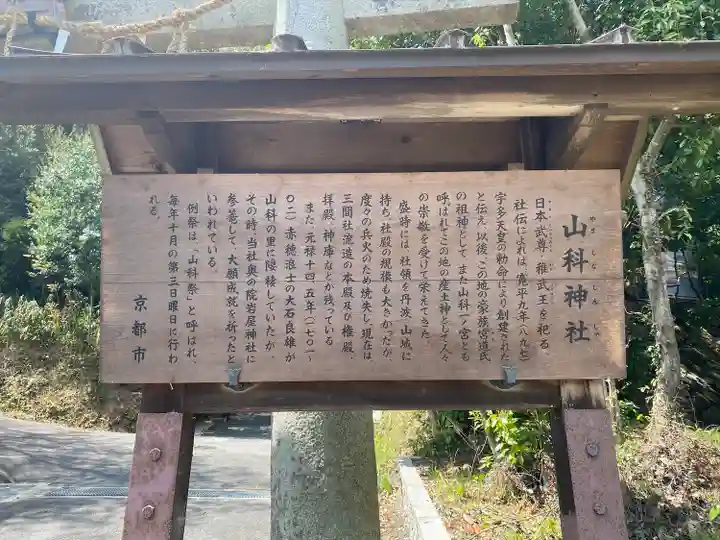 山科神社
やましなじんじゃ
日本武尊、稚武王を祀る。
社伝によれば、寛平九年（八九七）
宇多天皇の勅命により創建された
と伝え、以後、この地の豪族宮道氏
の祖神として、また山科一ノ宮とも
呼ばれてこの地の産土神として人々
の崇敬を受けて栄えてきた。
盛時には、社領を丹波、山城に
持ち、社殿の規模も大きかったが、
度々の兵火のため焼失し、現在は
三間社流造の本殿及び権殿、
拝殿、神庫などが残っている。
また、元禄十四、五年（一七〇一～
〇二）赤穂浪士の大石良雄が
山科の里に隠棲していたが、
その時、当社奥の院岩屋神社に
参篭して、大願成就を祈ったと
いわれている。
例祭は、「山科祭」と呼ばれ、
毎年十月の第三日曜日に行わ
れる。
京都市